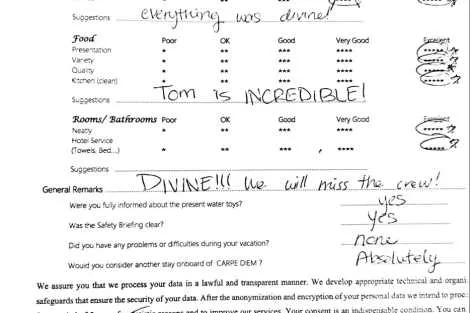 Suggestions everything was divine!
Food Poor OK Good Very Good Excellent
Presentation * ** *** **** *****
Variety * ** *** **** *****
Quality * ** *** **** *****
Kitchen (clean) * ** *** **** *****
Suggestions Tom is INCREDIBLE!
Rooms/ Bathrooms Poor OK Good Very Good Excellent
Neaty * ** *** **** *****
Hotel Service
(Towels, Bed...) * ** *** **** *****
Suggestions
General Remarks DIVINE!!! We will miss the crew!
Were you fully informed about the present water toys? yes
Was the Safety Briefing clear? yes
Did you have any problems or difficulties during your vacation? none
Would you consider another stay onboard of CARPE DIEM ? Absolutely
We assure you that we process your data in a lawful and transparent manner. We develop appropriate technical and organi
safeguards that ensure the security of your data. After the anonymization and encryption of your personal data we intend to proc
and to improve our services. Your consent is an indispensable condition. You can